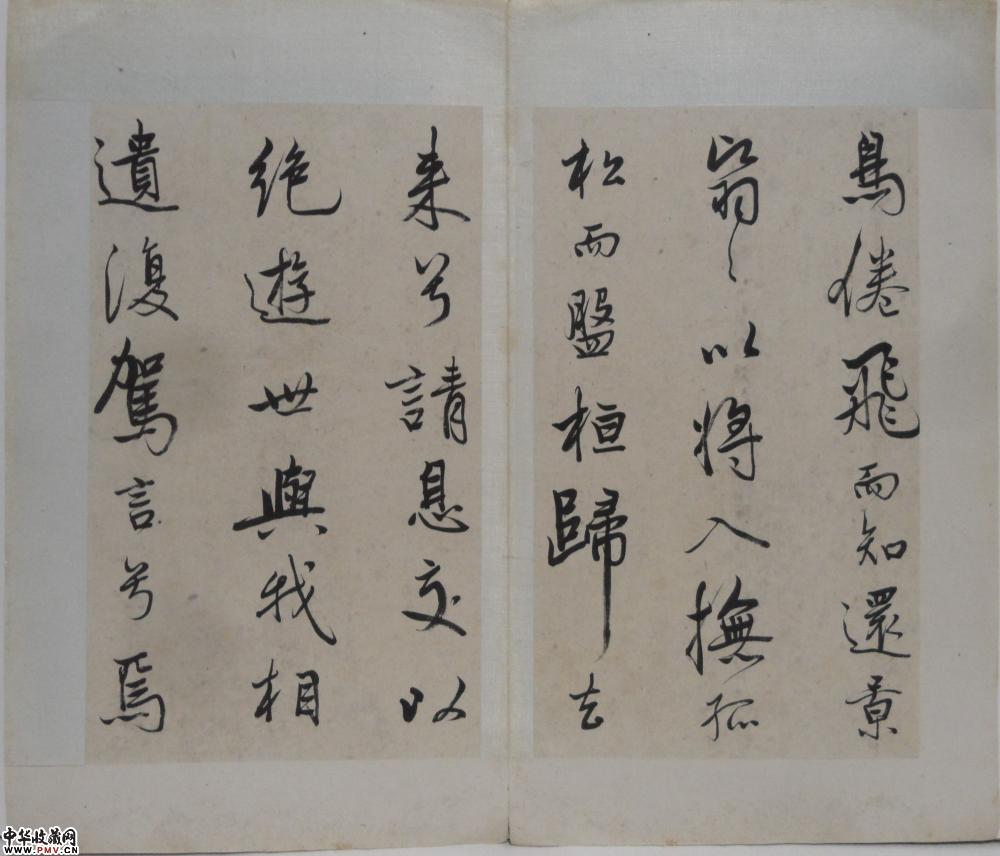 鳥倦飛而知還景
翳〻以將入撫孤
松而盤桓歸去
来兮請息交以
絶遊世與我相
遺復駕言兮焉
中华收藏网
WWW.PMV.CN